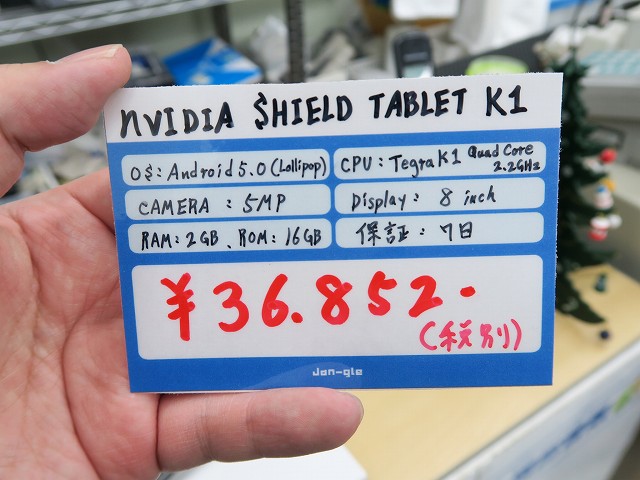 NVIDIA SHIELD TABLET K1
OS: Android 5.0 (Lollipop)
CPU: Tegra K1 Quad Core 2.2GHz
CAMERA: 5MP
Display: 8 inch
RAM: 2GB、ROM: 16GB
保証: 7日
¥36.852-
(税別)
Jan-gle